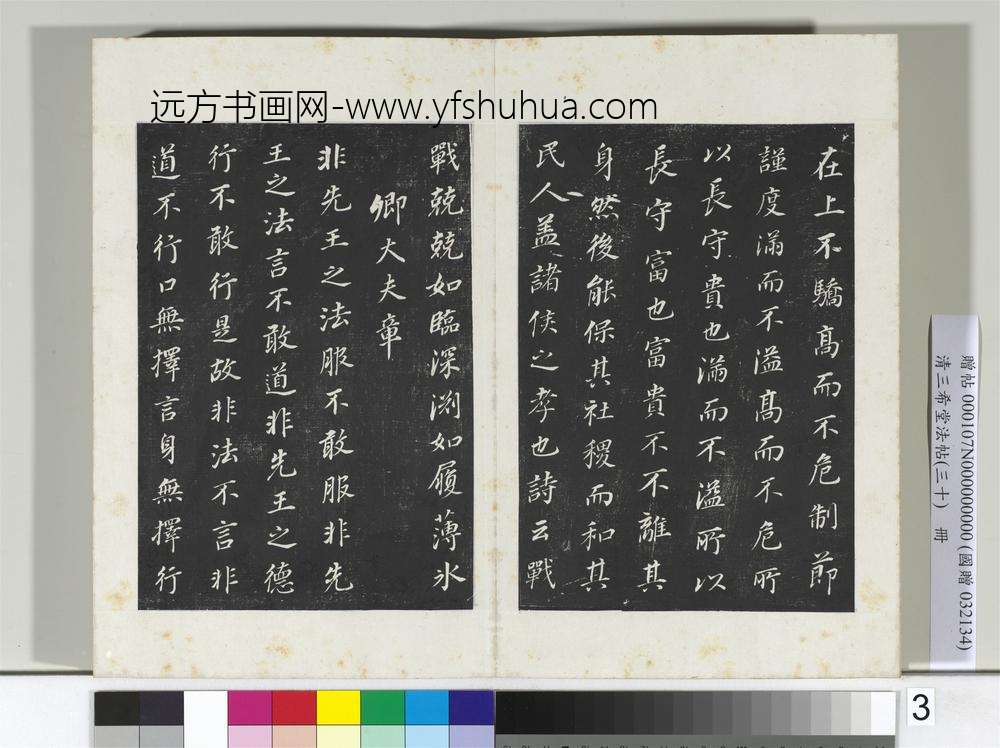 远方书画网-www.yfshuhua.com
在上不驕高而不危制節
謹度滿而不溢高而不危所
以長守貴也滿而不溢所以
長守富也富貴不不離其
身然後能保其社稷而和其
民人盖諸侯之孝也詩云戰
戰兢兢如臨深渊如履薄氷
卿大夫章
非先王之法服不敢服非先
王之法言不敢道非先王之德
行不敢行是故非法不言非
道不行口無擇言身無擇行
贈帖 000107N000000000 (國贈 032134)
清三希堂法帖(三十) 冊
3